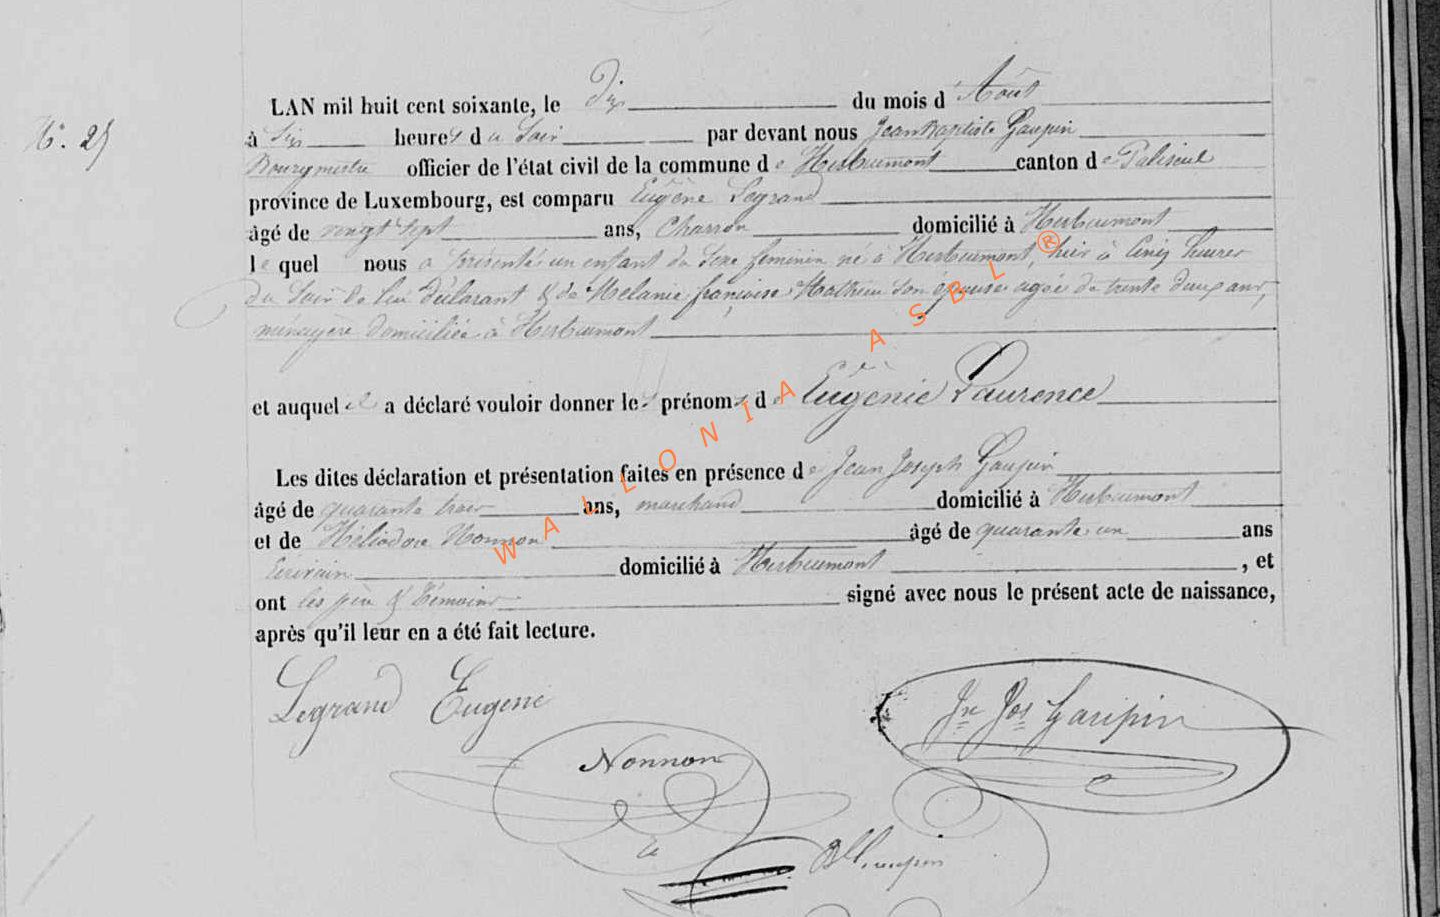 N.° 25
LAN mil huit cent soixante, le Dix du mois d' Août
à Six heures du Soir par devant nous Jean Baptiste Gaupin
Bourgmestre officier de l'état civil de la commune de Herbeumont canton de Paliseul
province de Luxembourg, est comparu Eugène Legrand
âgé de vingt Sept ans, Charron domicilié à Herbeumont
le quel nous a présenté un enfant du Sexe féminin né à Herbeumont, hier à Cinq heures
du Soir de lui déclarant & de Mélanie françoise Mathieu Son épouse agée de trente deux ans,
ménagère domiciliée à Herbeumont
et auquel il a déclaré vouloir donner les prénoms de Eugénie Laurence
Les dites déclaration et présentation faites en présence de Jean Joseph Gaupin
âgé de quarante trois ans, marchand domicilié à Herbeumont
et de Héliodore Nonnon âgé de quarante un ans
Ecrivain domicilié à Herbeumont , et
ont les père & témoins signé avec nous le présent acte de naissance,
après qu'il leur en a été fait lecture.
Legrand Eugene
Jn Jos Gaupin
Nonnon
WALLONIA ASBL ®